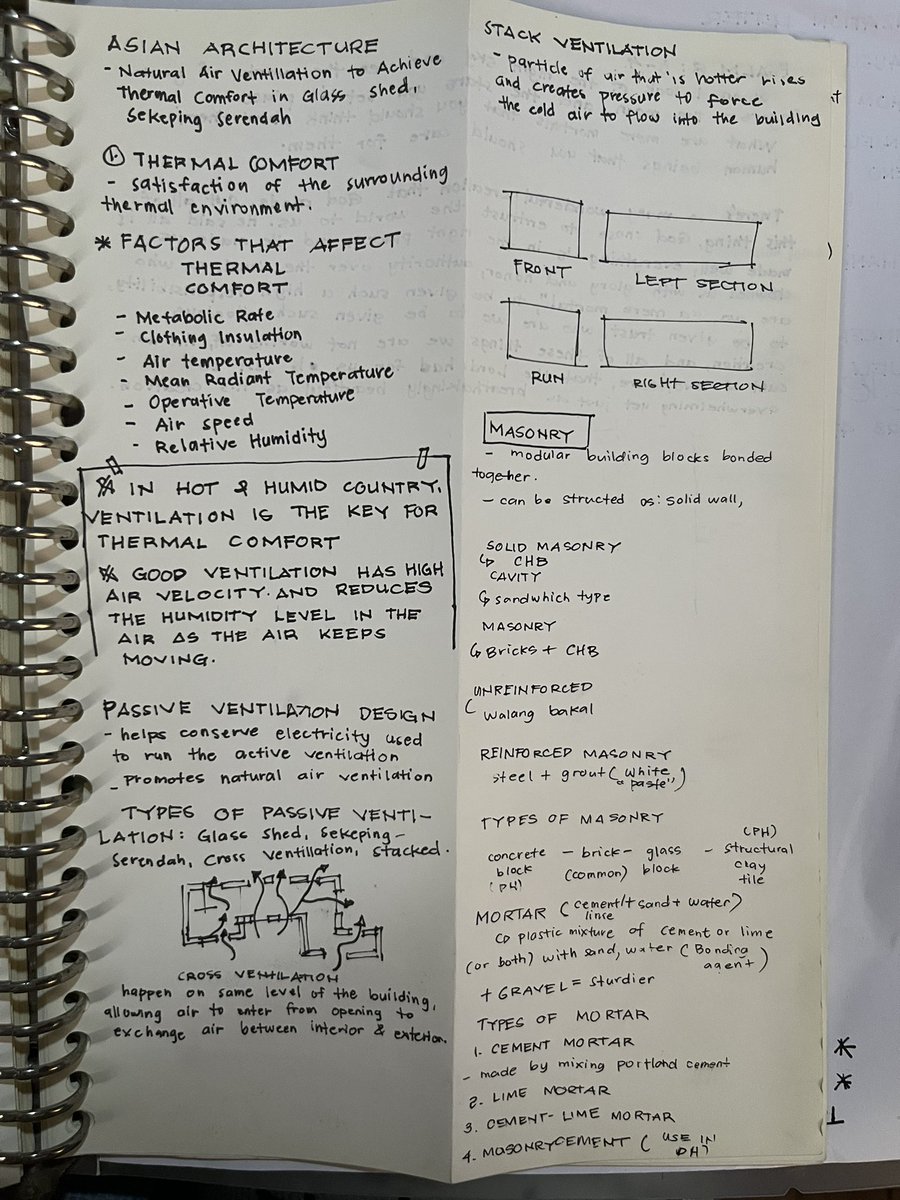 ASIAN ARCHITECTURE
- Natural Air Ventillation to Achieve
Thermal Comfort in Glass shed,
Sekeping Serendah
1. THERMAL COMFORT
- satisfaction of the surrounding
thermal environment.
* FACTORS THAT AFFECT
THERMAL
COMFORT
- Metabolic Rate
- Clothing Insulation
- Air temperature.
- Mean Radiant Temperature
- Operative Temperature
- Air speed
- Relative Humidity
* IN HOT & HUMID COUNTRY,
VENTILATION IS THE KEY FOR
THERMAL COMFORT
* GOOD VENTILATION HAS HIGH
AIR VELOCITY. AND REDUCES
THE HUMIDITY LEVEL IN THE
AIR AS THE AIR KEEPS
MOVING.
PASSIVE VENTILATION DESIGN
- helps conserve electricity used
to run the active ventilation
- promotes natural air ventilation
TYPES OF PASSIVE VENTI-
LATION: Glass Shed, Sekeping-
Serendah, Cross Ventillation, stacked.
CROSS VENTILATION
happen on same level of the building,
allowing air to enter from opening to
exchange air between interior & exterior.
STACK VENTILATION
- particle of air that is hotter rises
and creates pressure to force
the cold air to flow into the building
FRONT
LEFT SECTION
RUN
RIGHT SECTION
MASONRY
- modular building blocks bonded
together.
- can be structed as: solid wall,
SOLID MASONRY
↳ CHB
CAVITY
↳ sandwhich type
MASONRY
↳ Bricks + CHB
UNREINFORCED
walang bakal
REINFORCED MASONRY
steel + grout (white "paste")
TYPES OF MASONRY
concrete block (PH) - brick (common) - glass block - structural clay tile (PH)
MORTAR (cement/lime + sand + water)
↳ plastic mixture of cement or lime
(or both) with sand, water (Bonding agent)
+ GRAVEL = sturdier
TYPES OF MORTAR
1. CEMENT MORTAR
- made by mixing portland cement
2. LIME MORTAR
3. CEMENT-LIME MORTAR
4. MASONRY CEMENT (USE IN PH)